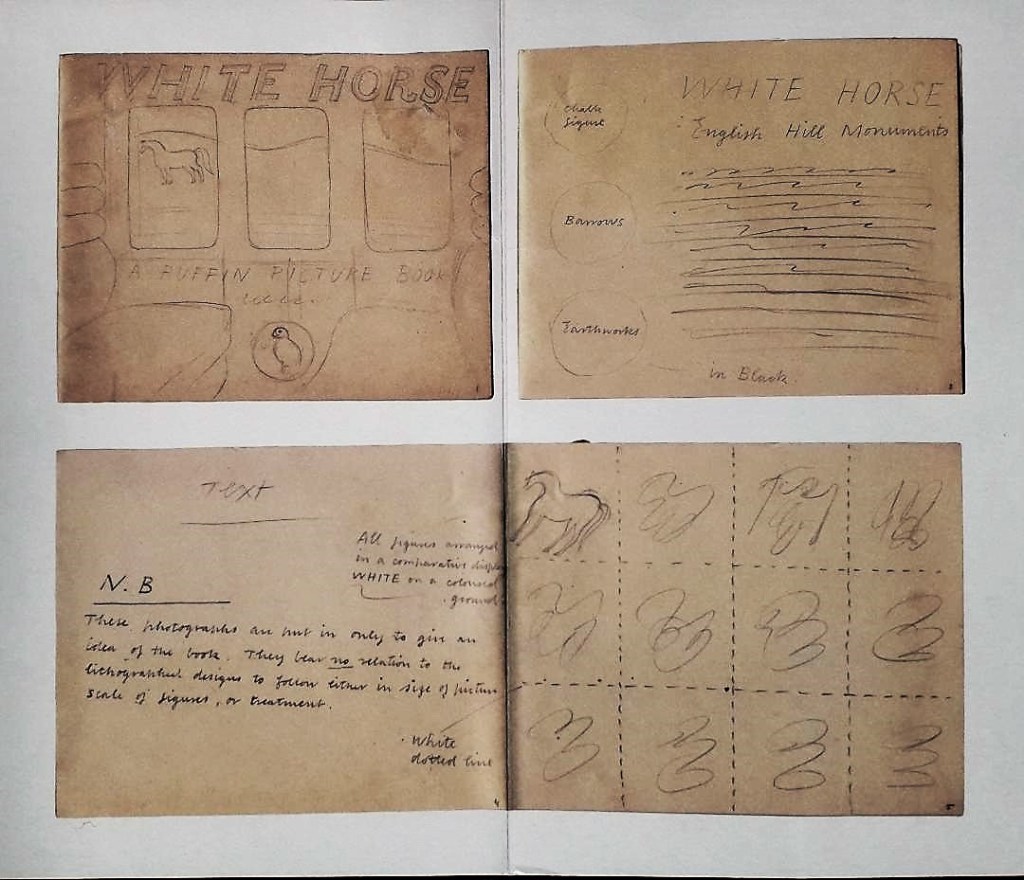 WHITE HORSE
A PUFFIN PICTURE BOOK
1
WHITE HORSE
: English Hill Monuments
Chalk
figure
Barrows
Earthworks
in Black.
3
Text
All figures arranged
in a comparative display
WHITE on a coloured
ground
N.B
These photographs are put in only to give an
idea of the book. They bear no relation to the
lithographed designs to follow either in size of picture
scale of figures, or treatment.
White
dotted line
4
5